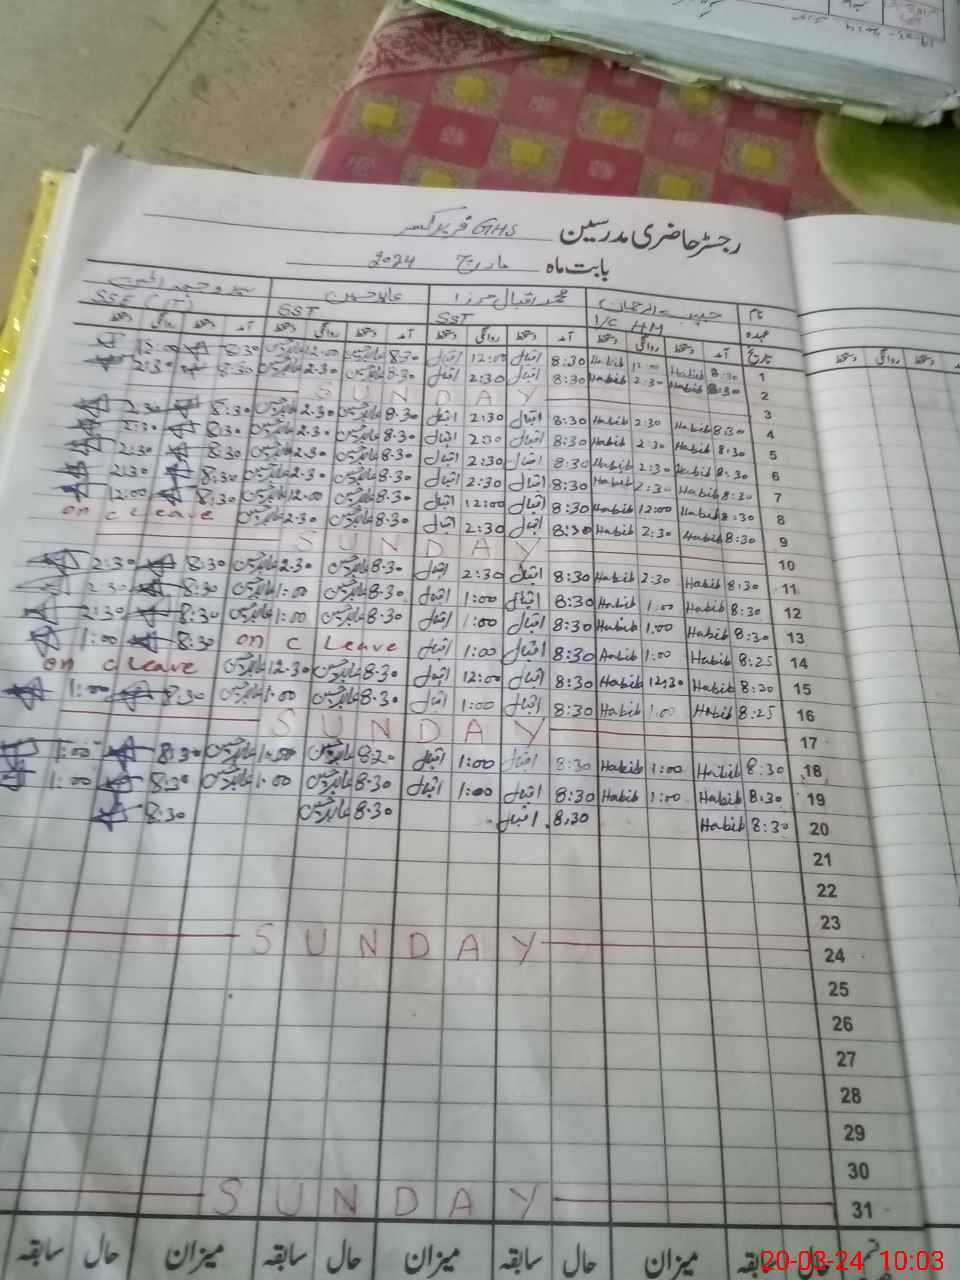 رجسٹر حاضری مدرسین GHS فرید کسر
بابت ماہ مارچ 2024
نام حبیب الرحمان محمد اقبال مرزا عابد حسین
عہدہ I/C HM SST SST SSE (IT)
تاریخ آمد دستخط روانگی دستخط آمد دستخط روانگی دستخط آمد دستخط روانگی دستخط آمد دستخط روانگی دستخط
1 8:30 Habib 12:00 Habib 8:30 اقبال 12:00 اقبال 8:30 عابد حسین 12:00 عابد حسین 8:30 12:00
2 8:30 Habib 2:30 Habib 8:30 اقبال 2:30 اقبال 8:30 عابد حسین 2:30 عابد حسین 8:30 2:30
3 SUNDAY
4 8:30 Habib 2:30 Habib 8:30 اقبال 2:30 اقبال 8:30 عابد حسین 2:30 عابد حسین 8:30 2:30
5 8:30 Habib 2:30 Habib 8:30 اقبال 2:30 اقبال 8:30 عابد حسین 2:30 عابد حسین 8:30 2:30
6 8:30 Habib 2:30 Habib 8:30 اقبال 2:30 اقبال 8:30 عابد حسین 2:30 عابد حسین 8:30 2:30
7 8:30 Habib 2:30 Habib 8:30 اقبال 2:30 اقبال 8:30 عابد حسین 2:30 عابد حسین 8:30 2:30
8 8:30 Habib 12:00 Habib 8:30 اقبال 12:00 اقبال 8:30 عابد حسین 12:00 عابد حسین 8:30 12:00
9 8:30 Habib 2:30 Habib 8:30 اقبال 2:30 اقبال 8:30 عابد حسین 2:30 عابد حسین on c Leave
10 SUNDAY
11 8:30 Habib 2:30 Habib 8:30 اقبال 2:30 اقبال 8:30 عابد حسین 2:30 عابد حسین 8:30 2:30
12 8:30 Habib 1:00 Habib 8:30 اقبال 1:00 اقبال 8:30 عابد حسین 1:00 عابد حسین 8:30 2:30
13 8:30 Habib 1:00 Habib 8:30 اقبال 1:00 اقبال 8:30 عابد حسین 1:00 عابد حسین 8:30 2:30
14 8:25 Habib 1:00 Habib 8:30 اقبال 1:00 اقبال on c Leave 8:30 1:00
15 8:20 Habib 12:30 Habib 8:30 اقبال 12:00 اقبال 8:30 عابد حسین 12:30 عابد حسین on c Leave
16 8:25 Habib 1:00 Habib 8:30 اقبال 1:00 اقبال 8:30 عابد حسین 1:00 عابد حسین 8:30 1:00
17 SUNDAY
18 8:30 Habib 1:00 Habib 8:30 اقبال 1:00 اقبال 8:20 عابد حسین 1:00 عابد حسین 8:30 1:00
19 8:30 Habib 1:00 Habib 8:30 اقبال 1:00 اقبال 8:30 عابد حسین 1:00 عابد حسین 8:30 1:00
20 8:30 Habib 8:30 اقبال 8:30 عابد حسین 8:30
21
22
23
24 SUNDAY
25
26
27
28
29
30
31 SUNDAY
سابقہ حال میزان سابقہ حال میزان سابقہ حال میزان سابقہ حال
دستخط روانگی دستخط
20-03-24 10:03